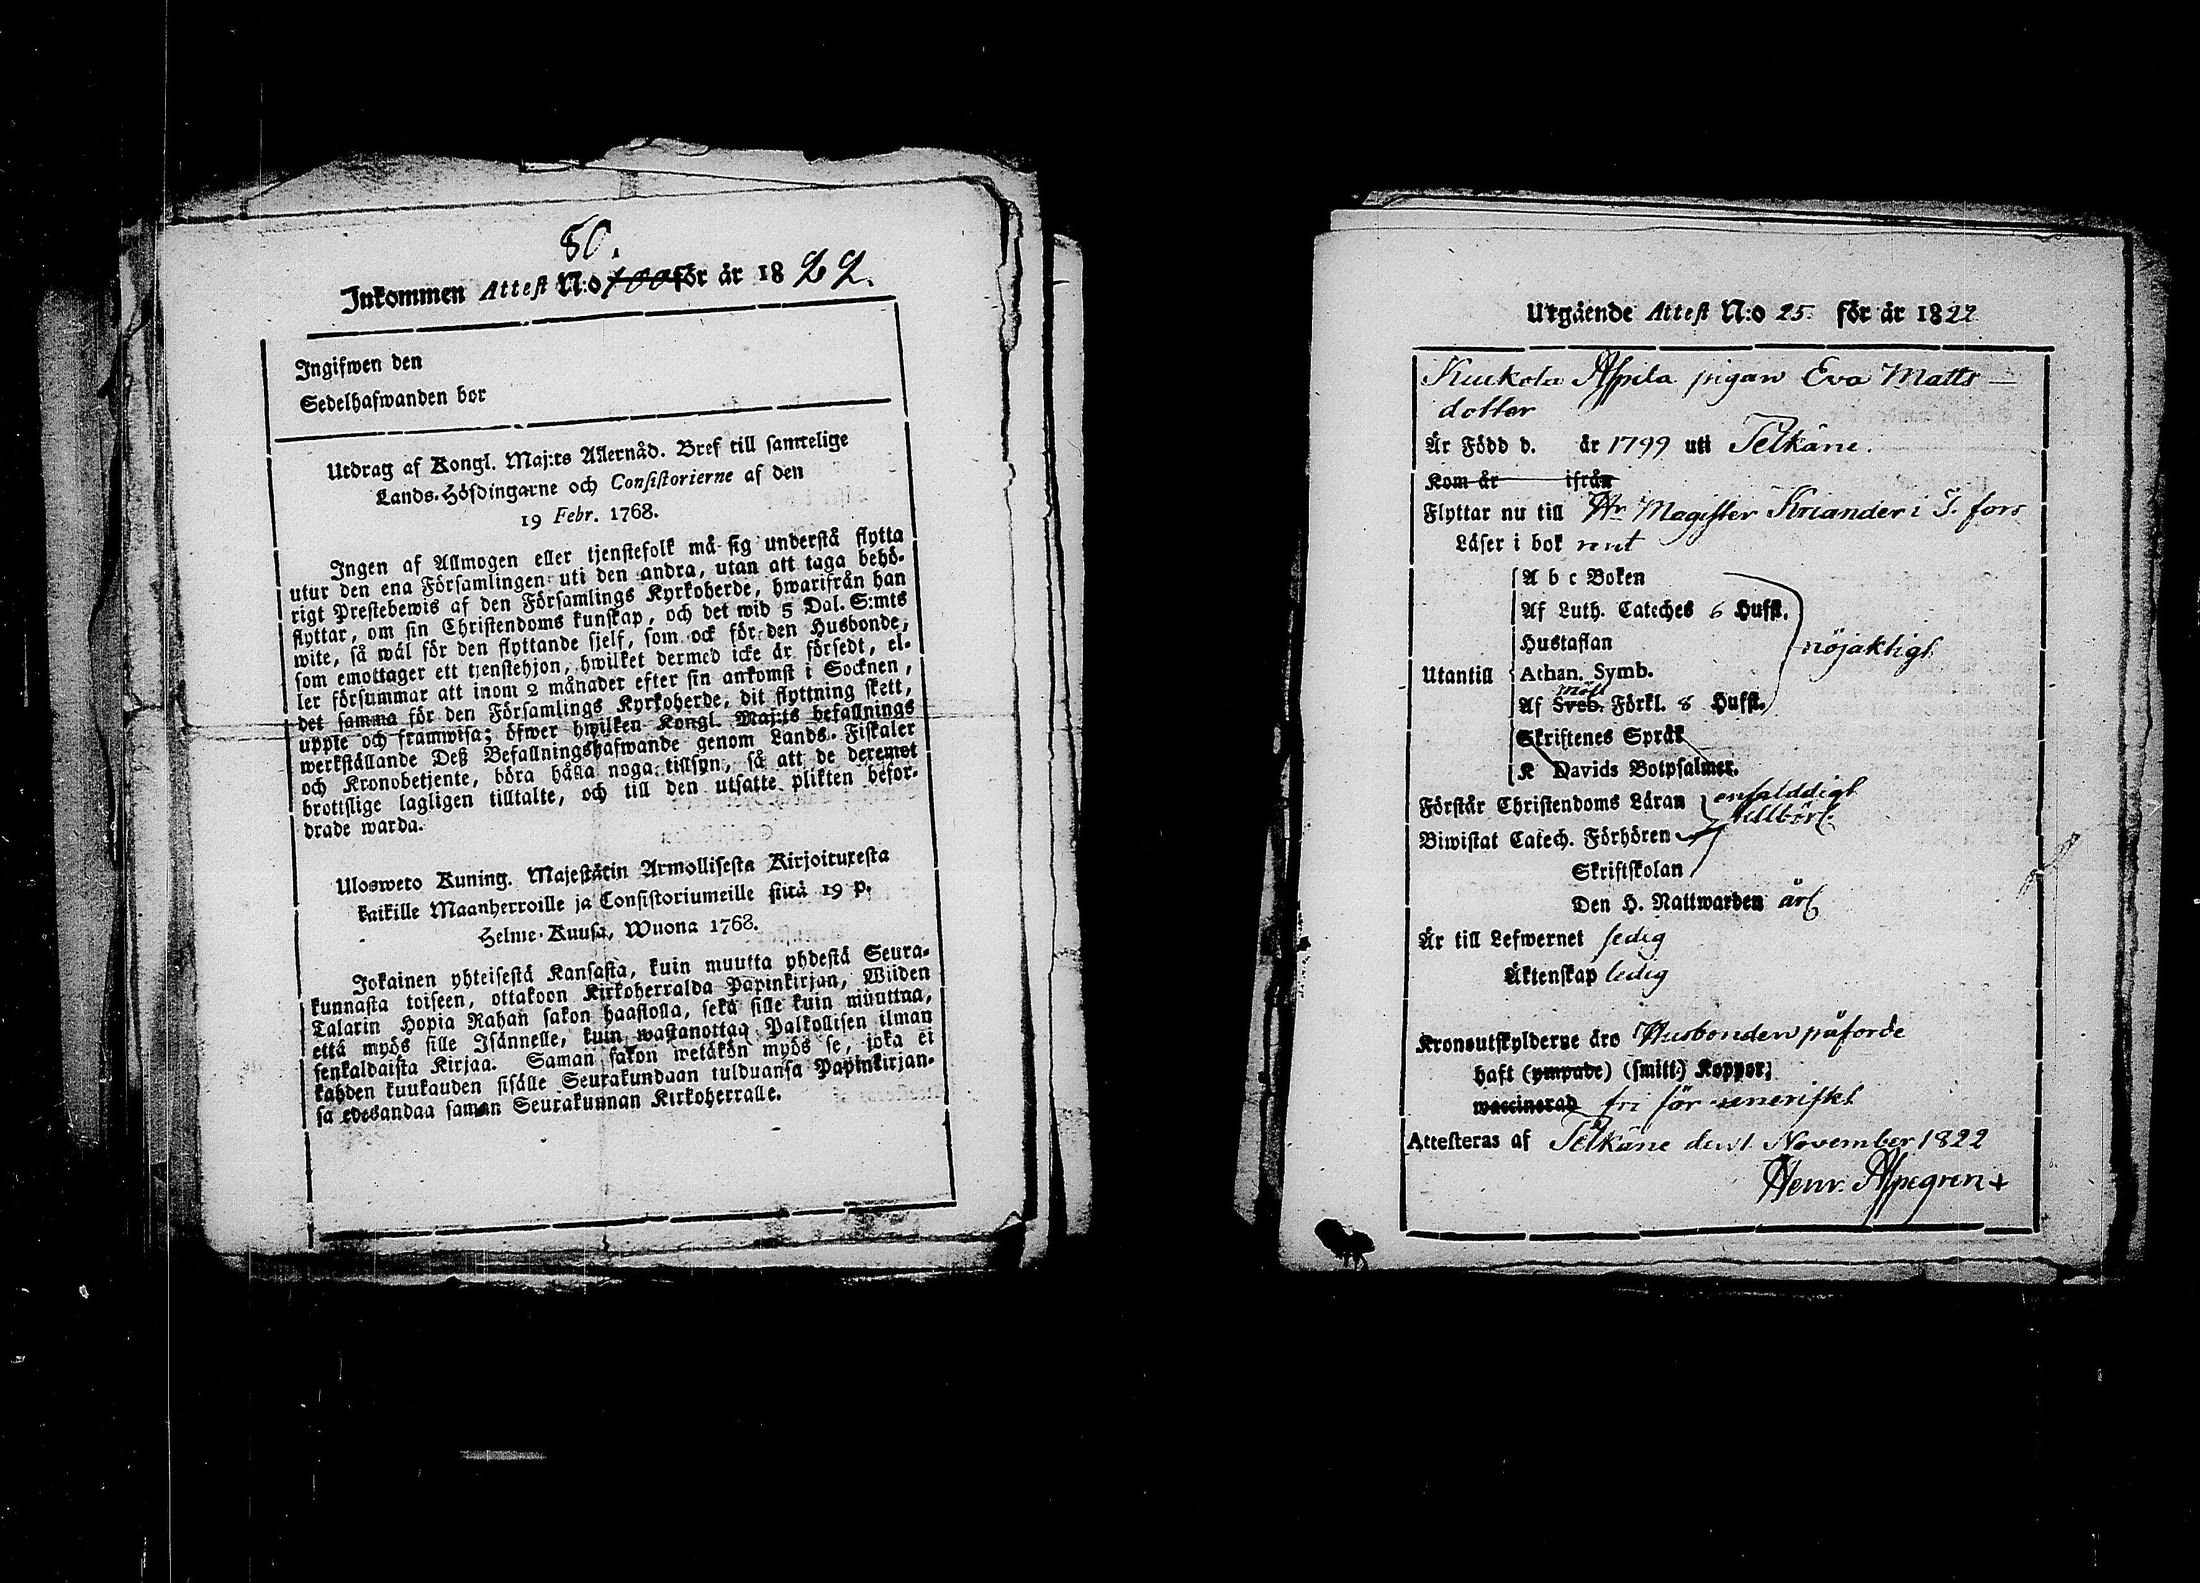 80.
Inkommen Attest N:o 100 för år 1822.
Ingifwen den
Sedelhafwanden bor
Utdrag af Kongl. Maj:ts Allernåd. Bref till samtelige
Lands-Höfdingarne och Consistorierne af den
19 Febr. 1768.
Ingen af Allmogen eller tjenstefolk må sig understå flytta
utur den ena Församlingen uti den andra, utan att taga behö-
rigt Prestebewis af den Församlings Kyrkoherde, hwarifrån han
flyttar, om sin Christendoms kunskap, och det wid 5 Dal. S:mts
wite, så wäl för den flyttande sjelf, som ock för den Husbonde,
som emottager ett tjenstehjon, hwilket dermed icke är försedt, el-
ler försummar att inom 2 månader efter sin ankomst i Socknen,
det samma för den Församlings Kyrkoherde, dit flyttning skett,
uppte och framwisa; öfwer hwilken Kongl. Maj:ts befallnings
werkställande Deß Befallningshafwande genom Lands-Fiskaler
och Kronobetjente, böra hålla noga tillsyn, så att de deremot
brottslige lagligen tilltalte, och till den utsatte plikten befor-
drade warda.
Ulosweto Kuning. Majestätin Armollisesta Kirjoituxesta
kaikille Maanherroille ja Consistoriumeille siitä 19 p.
Helme-Kuusa, Wuona 1768.
Jokainen yhteisestä Kansasta, kuin muutta yhdestä Seura-
kunnasta toiseen, ottakoon Kirkoherralda Papinkirjan, Wiiden
Talarin Hopia Rahan sakon haastolla, sekä sille kuin muuttaa,
että myös sille Isännelle, kuin wastanottaa Palkollisen ilman
senkaldaista Kirjaa. Saman sakon wetäkön myös se, joka ei
kahden kuukauden sisälle Seurakundaan tulduansa Papinkirjan-
sa edesandaa saman Seurakunnan Kirkoherralle.
Utgående Attest N:o 25. för år 1822
Kuukola Alpila pigan Eva Matts-
dotter
Är Född d. år 1799 uti Pelkäne.
Kom år ifrån
Flyttar nu till Hr Magister Kriander i T. fors
Läser i bok rent
A b c Boken
Af Luth. Cateches 6 Hufst.
Hustaflan
nöjaktigt
Utantill Athan. Symb.
möll
Af Sveb. Förkl. 8 Hufst.
Skriftenes Språk
K Davids Botpsalmer.
Förstår Christendoms Läran enfalddigt
Biwistat Catech. Förhören tillbörl.
Skriftskolan
Den H. Nattwarden årl
Är till Lefwernet sedig
Äktenskap ledig
Kronoutskylderne äro Husbonden påforde
haft (ympade) (smitt.) Koppor;
waccinerad fri för veneriskt
Attesteras af Pelkäne den 1 November 1822
Henr. Alpegren